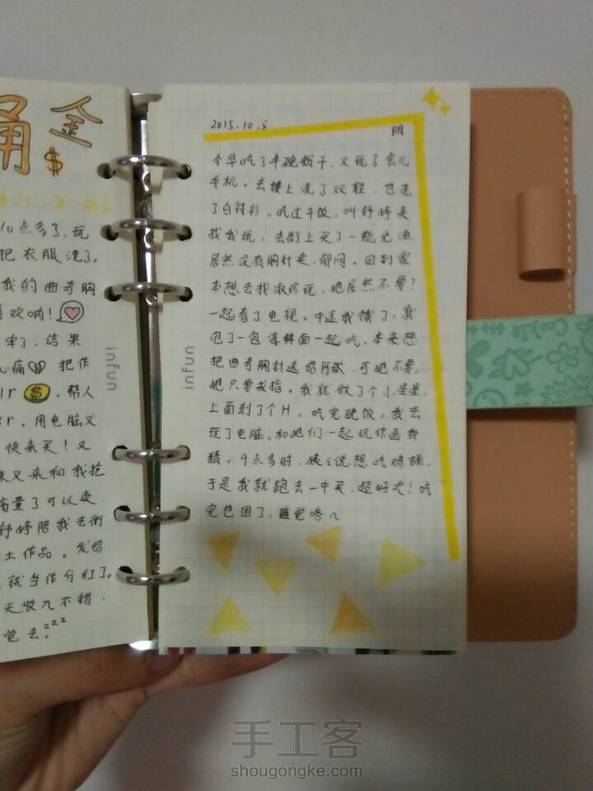 涌金
$
10点多了,玩
把衣服洗了。
我的曲奇胸
喜欢哟!
宰了,结果
心痛 把作
$,帮人
用电脑又
快来买!又
来又来和我抢
商量了可以卖
舒婷陪我去街
土作品。发给
我当作分红了。
天收入不错,
觉去?zzz
infun
infun
2015.10.5
阴
今早吃了半碗粉干,又玩了会儿
手机。去楼上洗了双鞋,也洗
了白衬衫。吃过午饭,叫舒婷来
找我玩,去街上买了一瓶光油
居然没有胸针夹,郁闷。回到家
本想去找淑珍玩,她居然不要?
一起看了电视。中途我饿了,真
泡了一包海鲜面一起吃。本来想
把曲奇胸针送给阿斌,可她不要,
她只要戒指。我就做了个小星星,
上面刻了个H。吃完晚饭,我去
玩了电脑。和她们一起玩你画我
猜。9点多时,姨说想吃鸡排,
于是我就跑去一中买,超好吃!吃
完已困了,睡觉咯~
手工客
shougongke.com